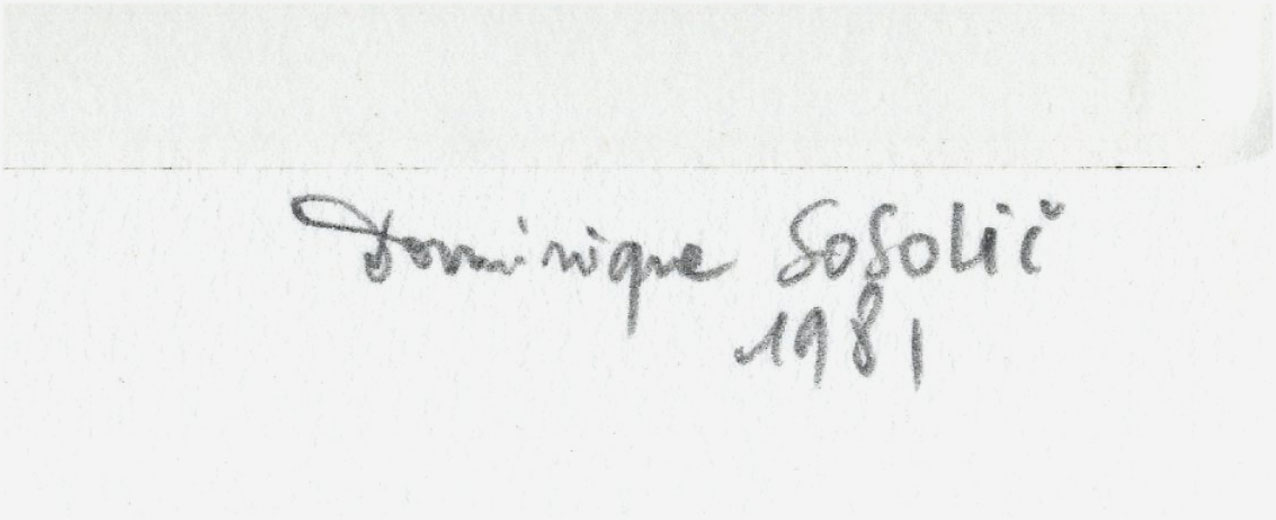 Dominique Sosolič
1981